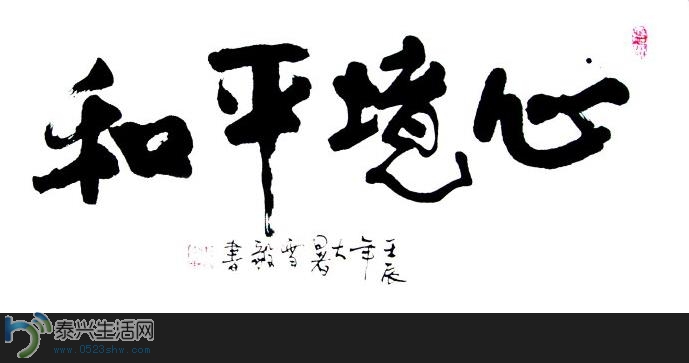 心境平和
壬辰年大暑雪毅書
泰兴生活网
www.0523shw.com